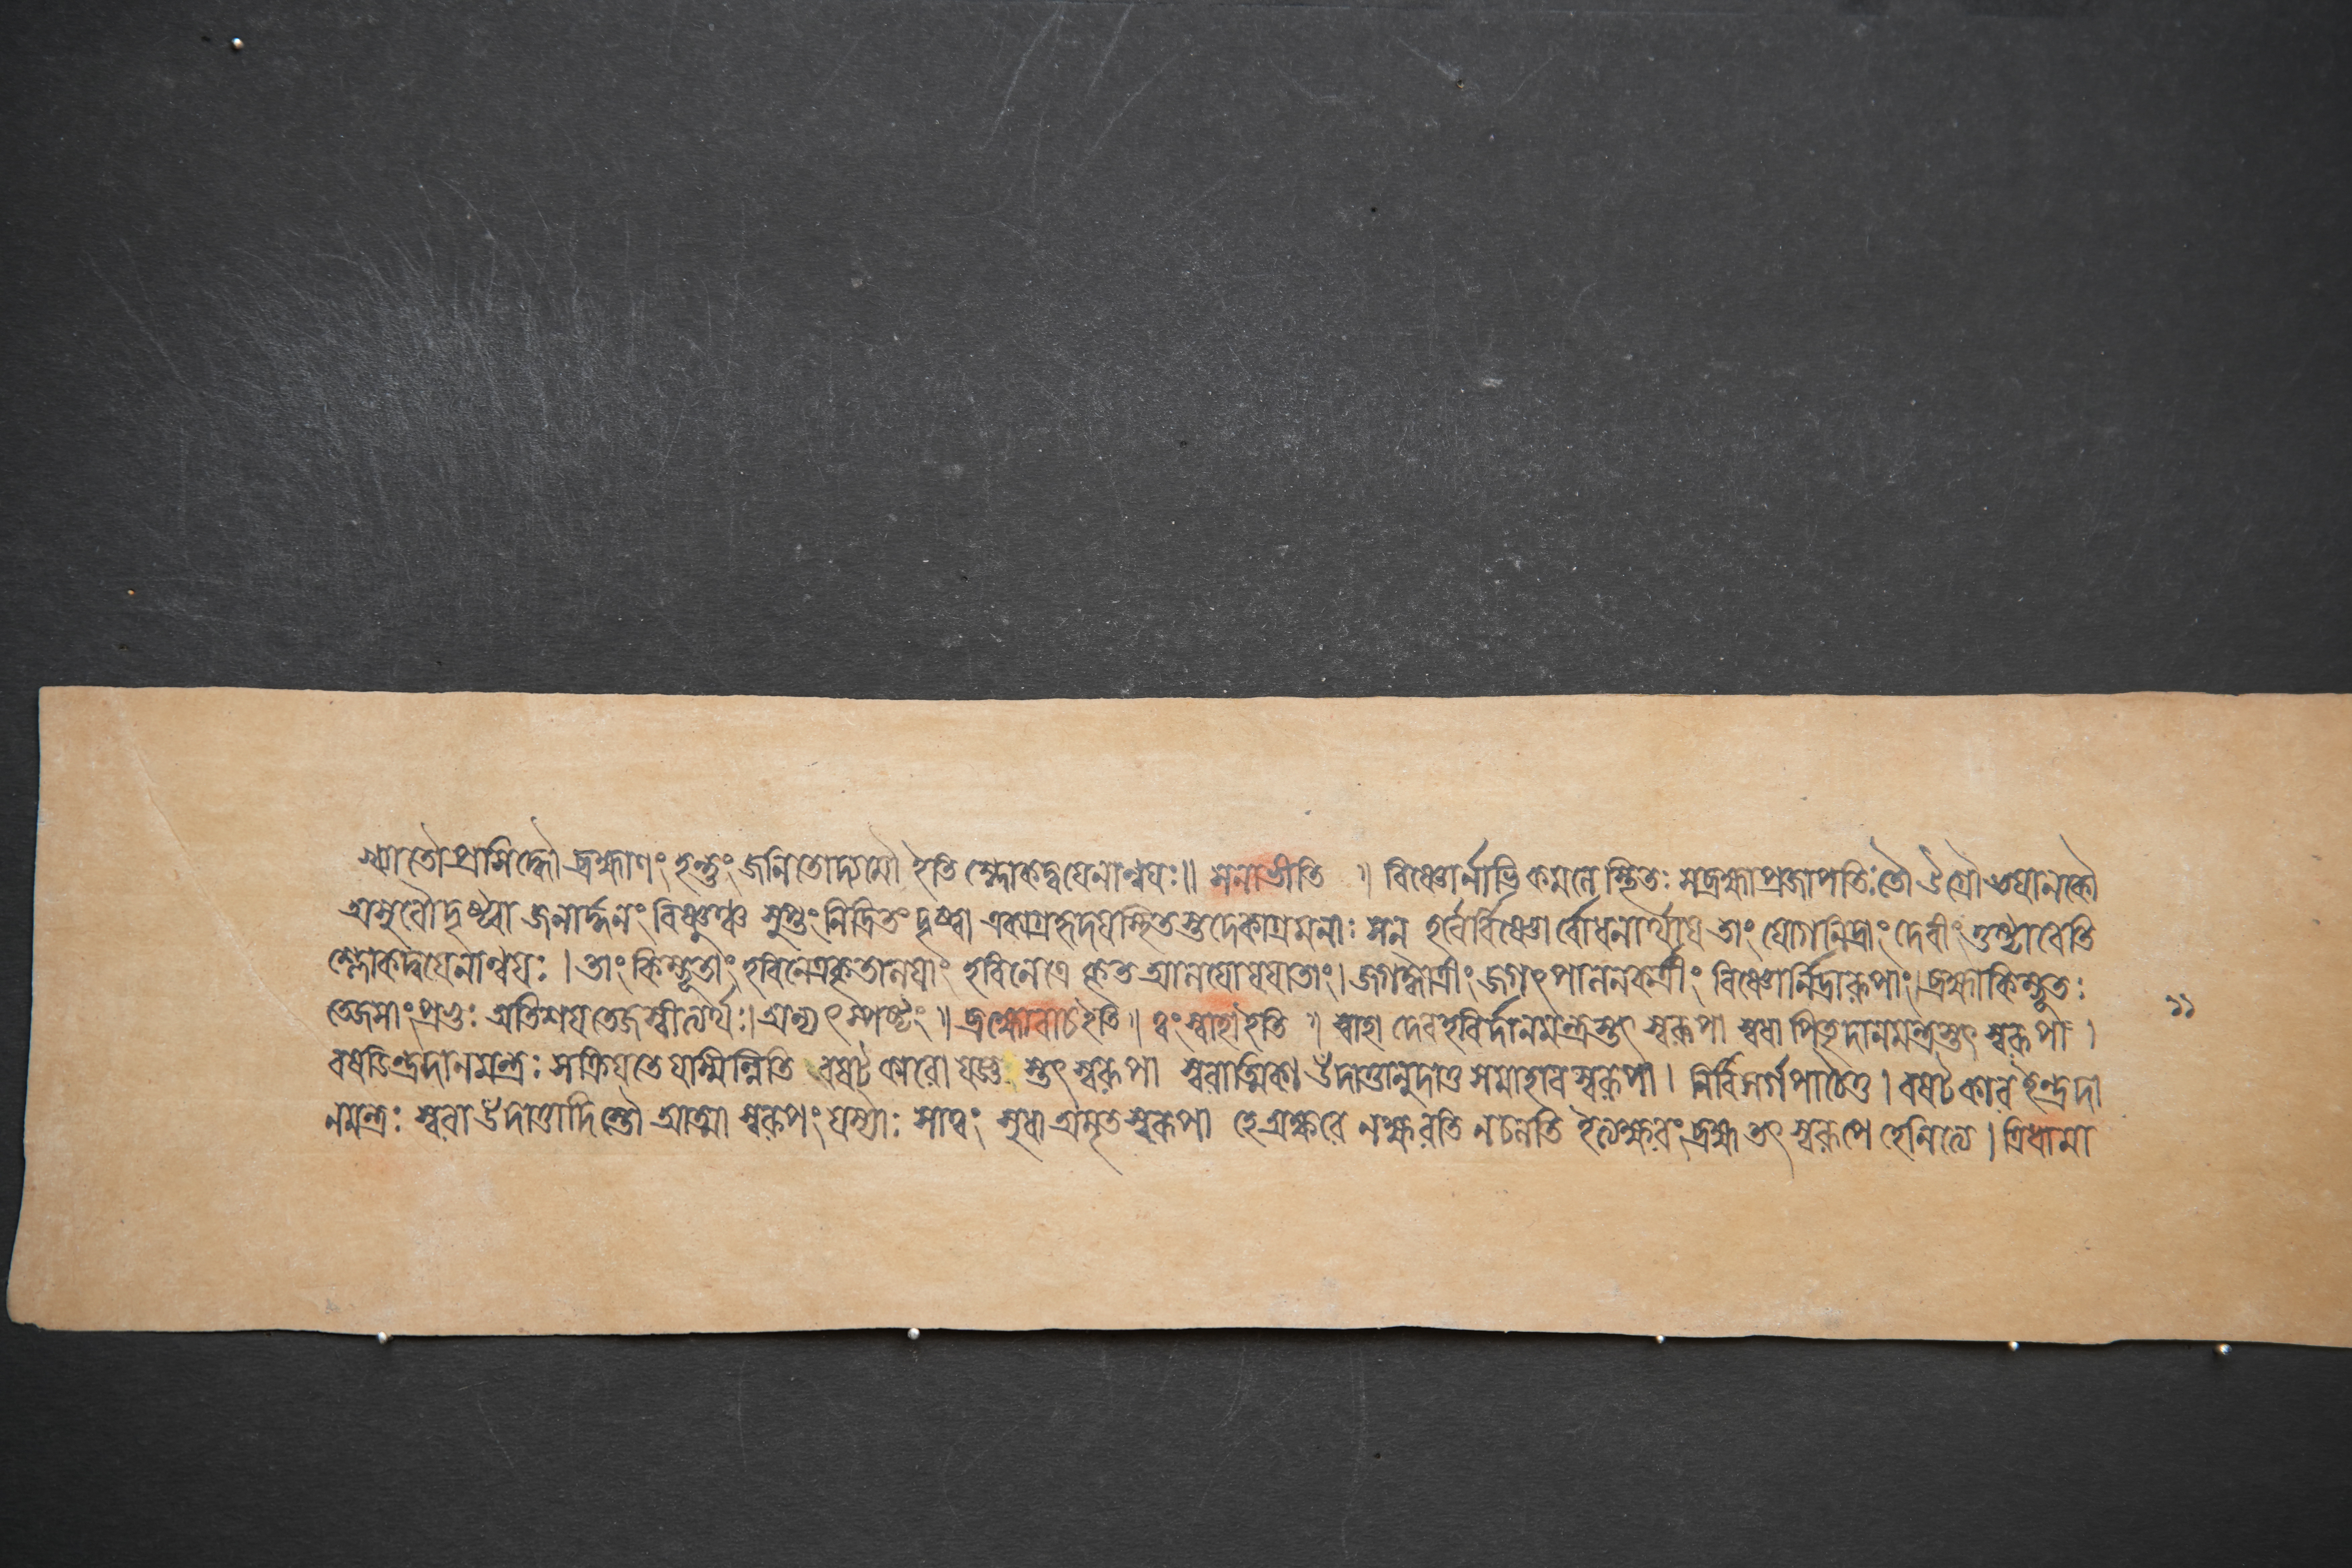 খ্যাতৌ প্রসিদ্ধৌ ব্রহ্মাণং হন্তুং জনিতোদ্যমৌ ইতি শ্লোকদ্বয়েনান্বয়ঃ॥ সনাভীতি ॥ বিষ্ণোর্নাভিকমলে স্থিতঃ স ব্রহ্মা প্রজাপতিঃ তৌ উগ্রৌ ভয়ানকৌ
অসুরৌ দৃষ্ট্বা জনার্দ্দনং বিষ্ণুঞ্চ সুপ্তং নিদ্রিতং দৃষ্ট্বা একাগ্রহৃদয়স্থিতস্তুদেকাগ্রমনাঃ সন্ হরের্বিষ্ণোর্বোধনার্থায় তাং যোগনিদ্রাং দেবীং তুষ্টাবেতি
শ্লোকদ্বয়েনান্বয়ঃ । তাং কিম্ভূতাং হরিনেত্রকৃতালয়াং হরিনেত্রে কৃত আলয়ো যয়া তাং। জগদ্ধাত্রীং জগৎপালনকর্ত্রীং বিষ্ণোর্নিদ্রারূপাং। ব্রহ্মা কিম্ভূতঃ
তেজসাং প্রভুঃ অতিশয় তেজস্বীত্যর্থঃ। অন্যৎ স্পষ্টং ॥ ব্রহ্মোবাচ ইতি ॥ ত্বং স্বাহা ইতি ॥ স্বাহা দেবহবির্দানমন্ত্রস্তৎ স্বরূপা স্বধা পিতৃদানমন্ত্রস্তৎ স্বরূপা ।
১১
বষডিন্দ্রদানমন্ত্রঃ স ক্রিয়তে যস্মিন্নিতি বষট্ কারো যজ্ঞ স্তৎ স্বরূপা স্বরাত্মিকা উদাত্তানুদাত্ত সমাহার স্বরূপা । নির্বিসর্গপাঠেতু । বষট্ কার ইন্দ্রদা
নমন্ত্রঃ স্বরা উদাত্তাদি স্তৌ আত্মা স্বরূপং যস্যাঃ সা ত্বং সুধা অমৃত স্বরূপা হে অক্ষরে ন ক্ষরতি ন চলতি ইত্যক্ষরং ব্রহ্ম তৎ স্বরূপে হে নিত্যে । ত্রিধামা